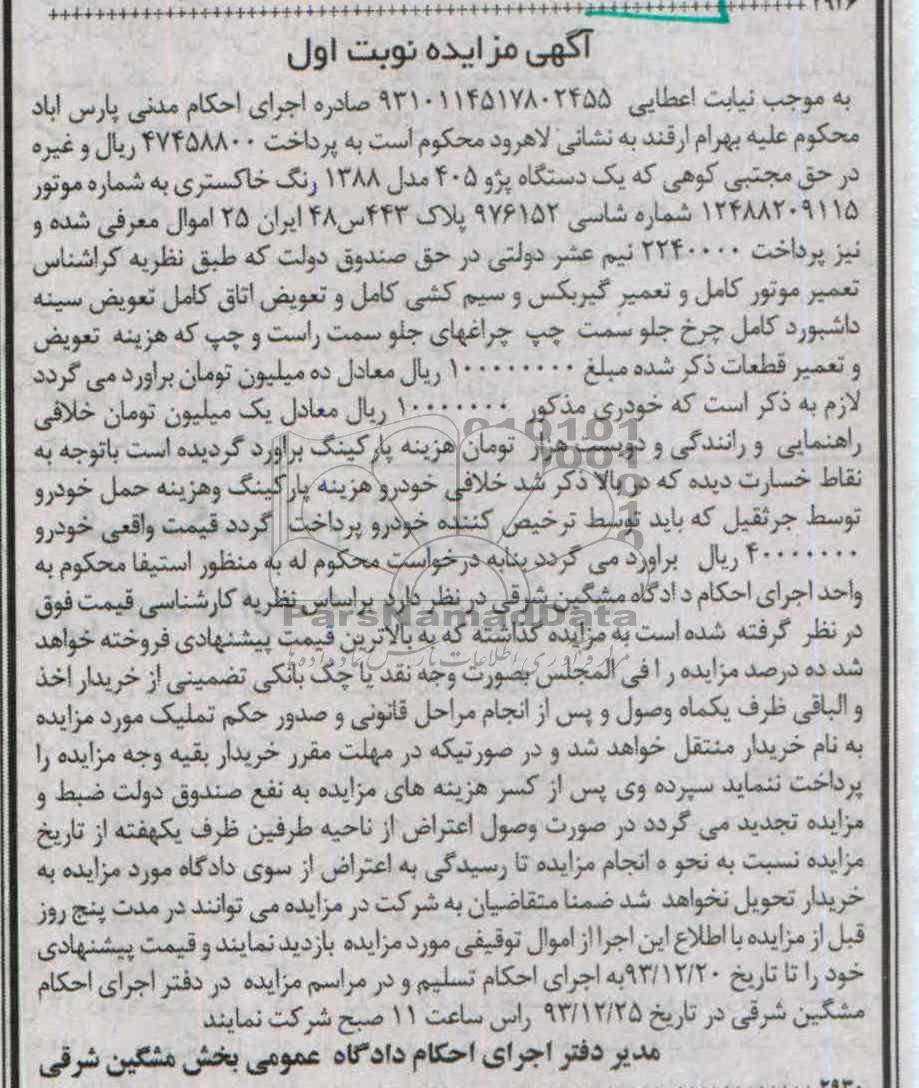 ۲۹۲۶
آگهی مزایده نوبت اول
به موجب نیابت اعطایی ۹۳۱۰۱۱۴۵۱۷۸۰۲۴۵۵ صادره اجرای احکام مدنی پارس اباد
محکوم علیه بهرام ارقند به نشانی لاهرود محکوم است به پرداخت ۴۷۴۵۸۸۰۰ ریال و غیره
در حق مجتبی کوهی که یک دستگاه پژو ۴۰۵ مدل ۱۳۸۸ رنگ خاکستری به شماره موتور
۱۲۴۸۸۲۰۹۱۱۵ شماره شاسی ۹۷۶۱۵۲ پلاک ۴۴۳س۴۸ ایران ۲۵ اموال معرفی شده و
نیز پرداخت ۲۲۴۰۰۰۰ نیم عشر دولتی در حق صندوق دولت که طبق نظریه کراشناس
تعمیر موتور کامل و تعمیر گیربکس و سیم کشی کامل و تعویض اتاق کامل تعویض سینه
داشبورد کامل چرخ جلو سمت چپ چراغهای جلو سمت راست و چپ که هزینه تعویض
و تعمیر قطعات ذکر شده مبلغ ۱۰۰۰۰۰۰۰۰ ریال معادل ده میلیون تومان براورد می گردد
لازم به ذکر است که خودری مذکور ۱۰۰۰۰۰۰۰ ریال معادل یک میلیون تومان خلافی
راهنمایی و رانندگی و دویست هزار تومان هزینه پارکینگ براورد گردیده است باتوجه به
نقاط خسارت دیده که در بالا ذکر شد خلافی خودرو هزینه پارکینگ وهزینه حمل خودرو
توسط جرثقیل که باید توسط ترخیص کننده خودرو پرداخت گردد قیمت واقعی خودرو
۴۰۰۰۰۰۰۰ ریال براورد می گردد بنابه درخواست محکوم له به منظور استیفا محکوم به
واحد اجرای احکام د ادگاه مشگین شرقی در نظر دارد براساس نظریه کارشناسی قیمت فوق
در نظر گرفته شده است به مزایده گذاشته که به بالاترین قیمت پیشنهادی فروخته خواهد
شد ده درصد مزایده را فی المجلس بصورت وجه نقد یا چک بانکی تضمینی از خریدار اخذ
و الباقی ظرف یکماه وصول و پس از انجام مراحل قانونی و صدور حکم تملیک مورد مزایده
به نام خریدار منتقل خواهد شد و در صورتیکه در مهلت مقرر خریدار بقیه وجه مزایده را
پرداخت ننماید سپرده وی پس از کسر هزینه های مزایده به نفع صندوق دولت ضبط و
مزایده تجدید می گردد در صورت وصول اعتراض از ناحیه طرفین ظرف یکهفته از تاریخ
مزایده نسبت به نحو ه انجام مزایده تا رسیدگی به اعتراض از سوی دادگاه مورد مزایده به
خریدار تحویل نخواهد شد ضمنا متقاضیان به شرکت در مزایده می توانند در مدت پنج روز
قبل از مزایده با اطلاع این اجرا از اموال توقیفی مورد مزایده بازدید نمایند و قیمت پیشنهادی
خود را تا تاریخ ۹۳/۱۲/۲۰به اجرای احکام تسلیم و در مراسم مزایده در دفتر اجرای احکام
مشگین شرقی در تاریخ ۹۳/۱۲/۲۵ راس ساعت ۱۱ صبح شرکت نمایند
مدیر دفتر اجرای احکام دادگاه عمومی بخش مشگین شرقی
ParsNamadData